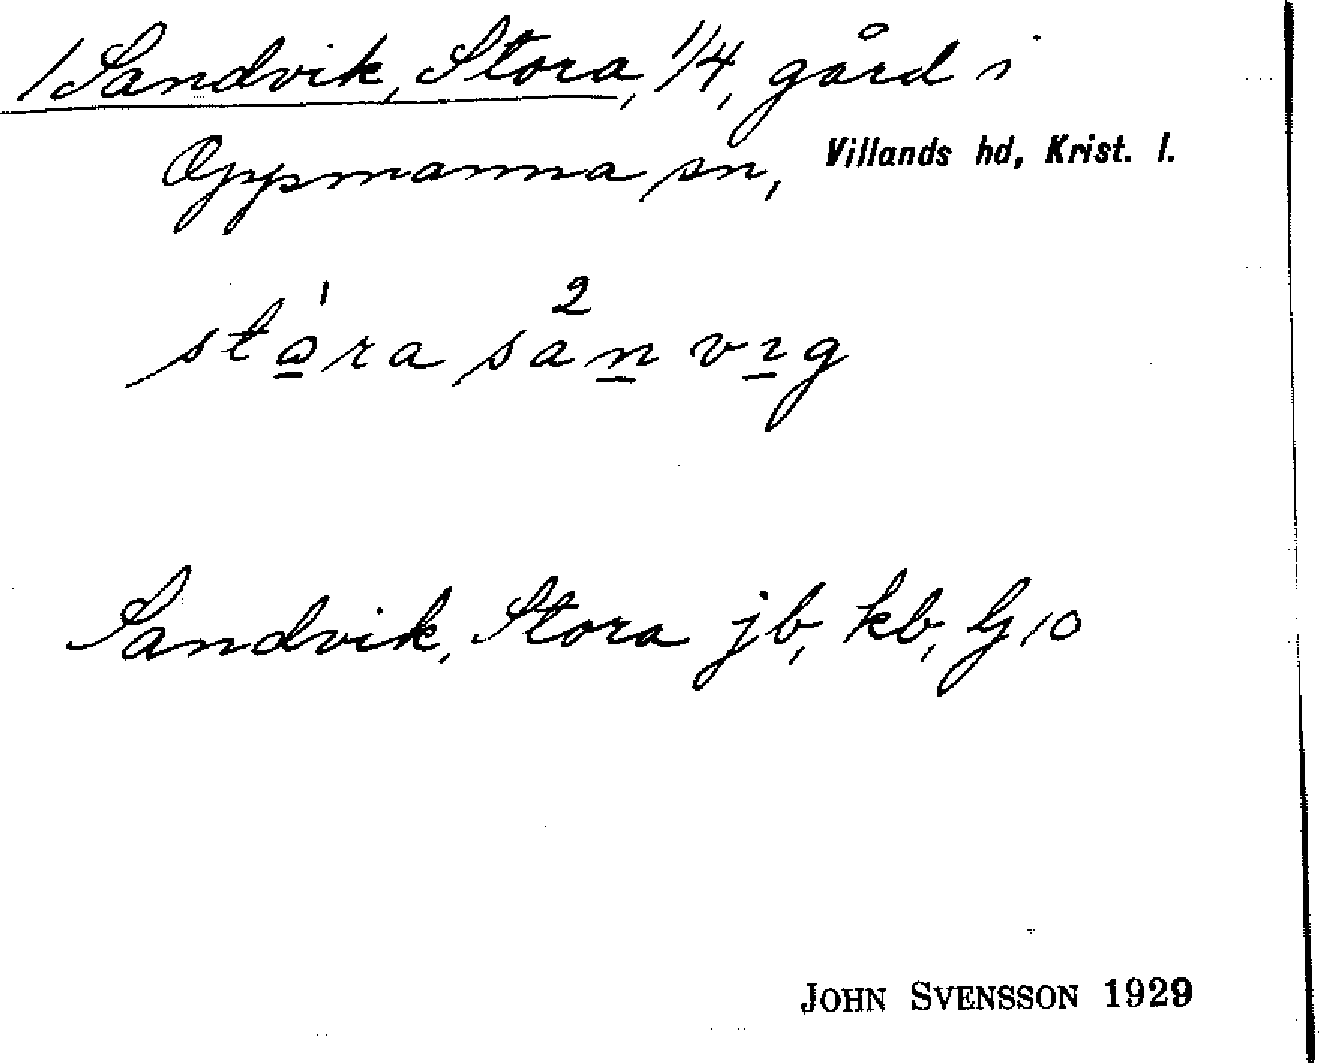 /Sandvik, Stora, 1/4, gård i
Oppmanna sn, Villands hd, Krist. l.
stɷ̲́ra sa²n̲ vı̲g
Sandvik, Stora jb, kb, G 10
JOHN SVENSSON 1929